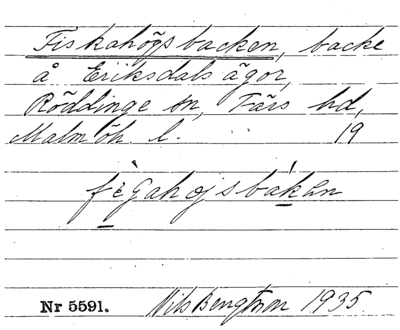 Fiskahögsbacken, backe
å Eriksdals ägor,
Röddinge sn, Färs hd,
Malmöh. l. 19
fègahojsbákan
Nr 5591. Nils Bengtsson 1935